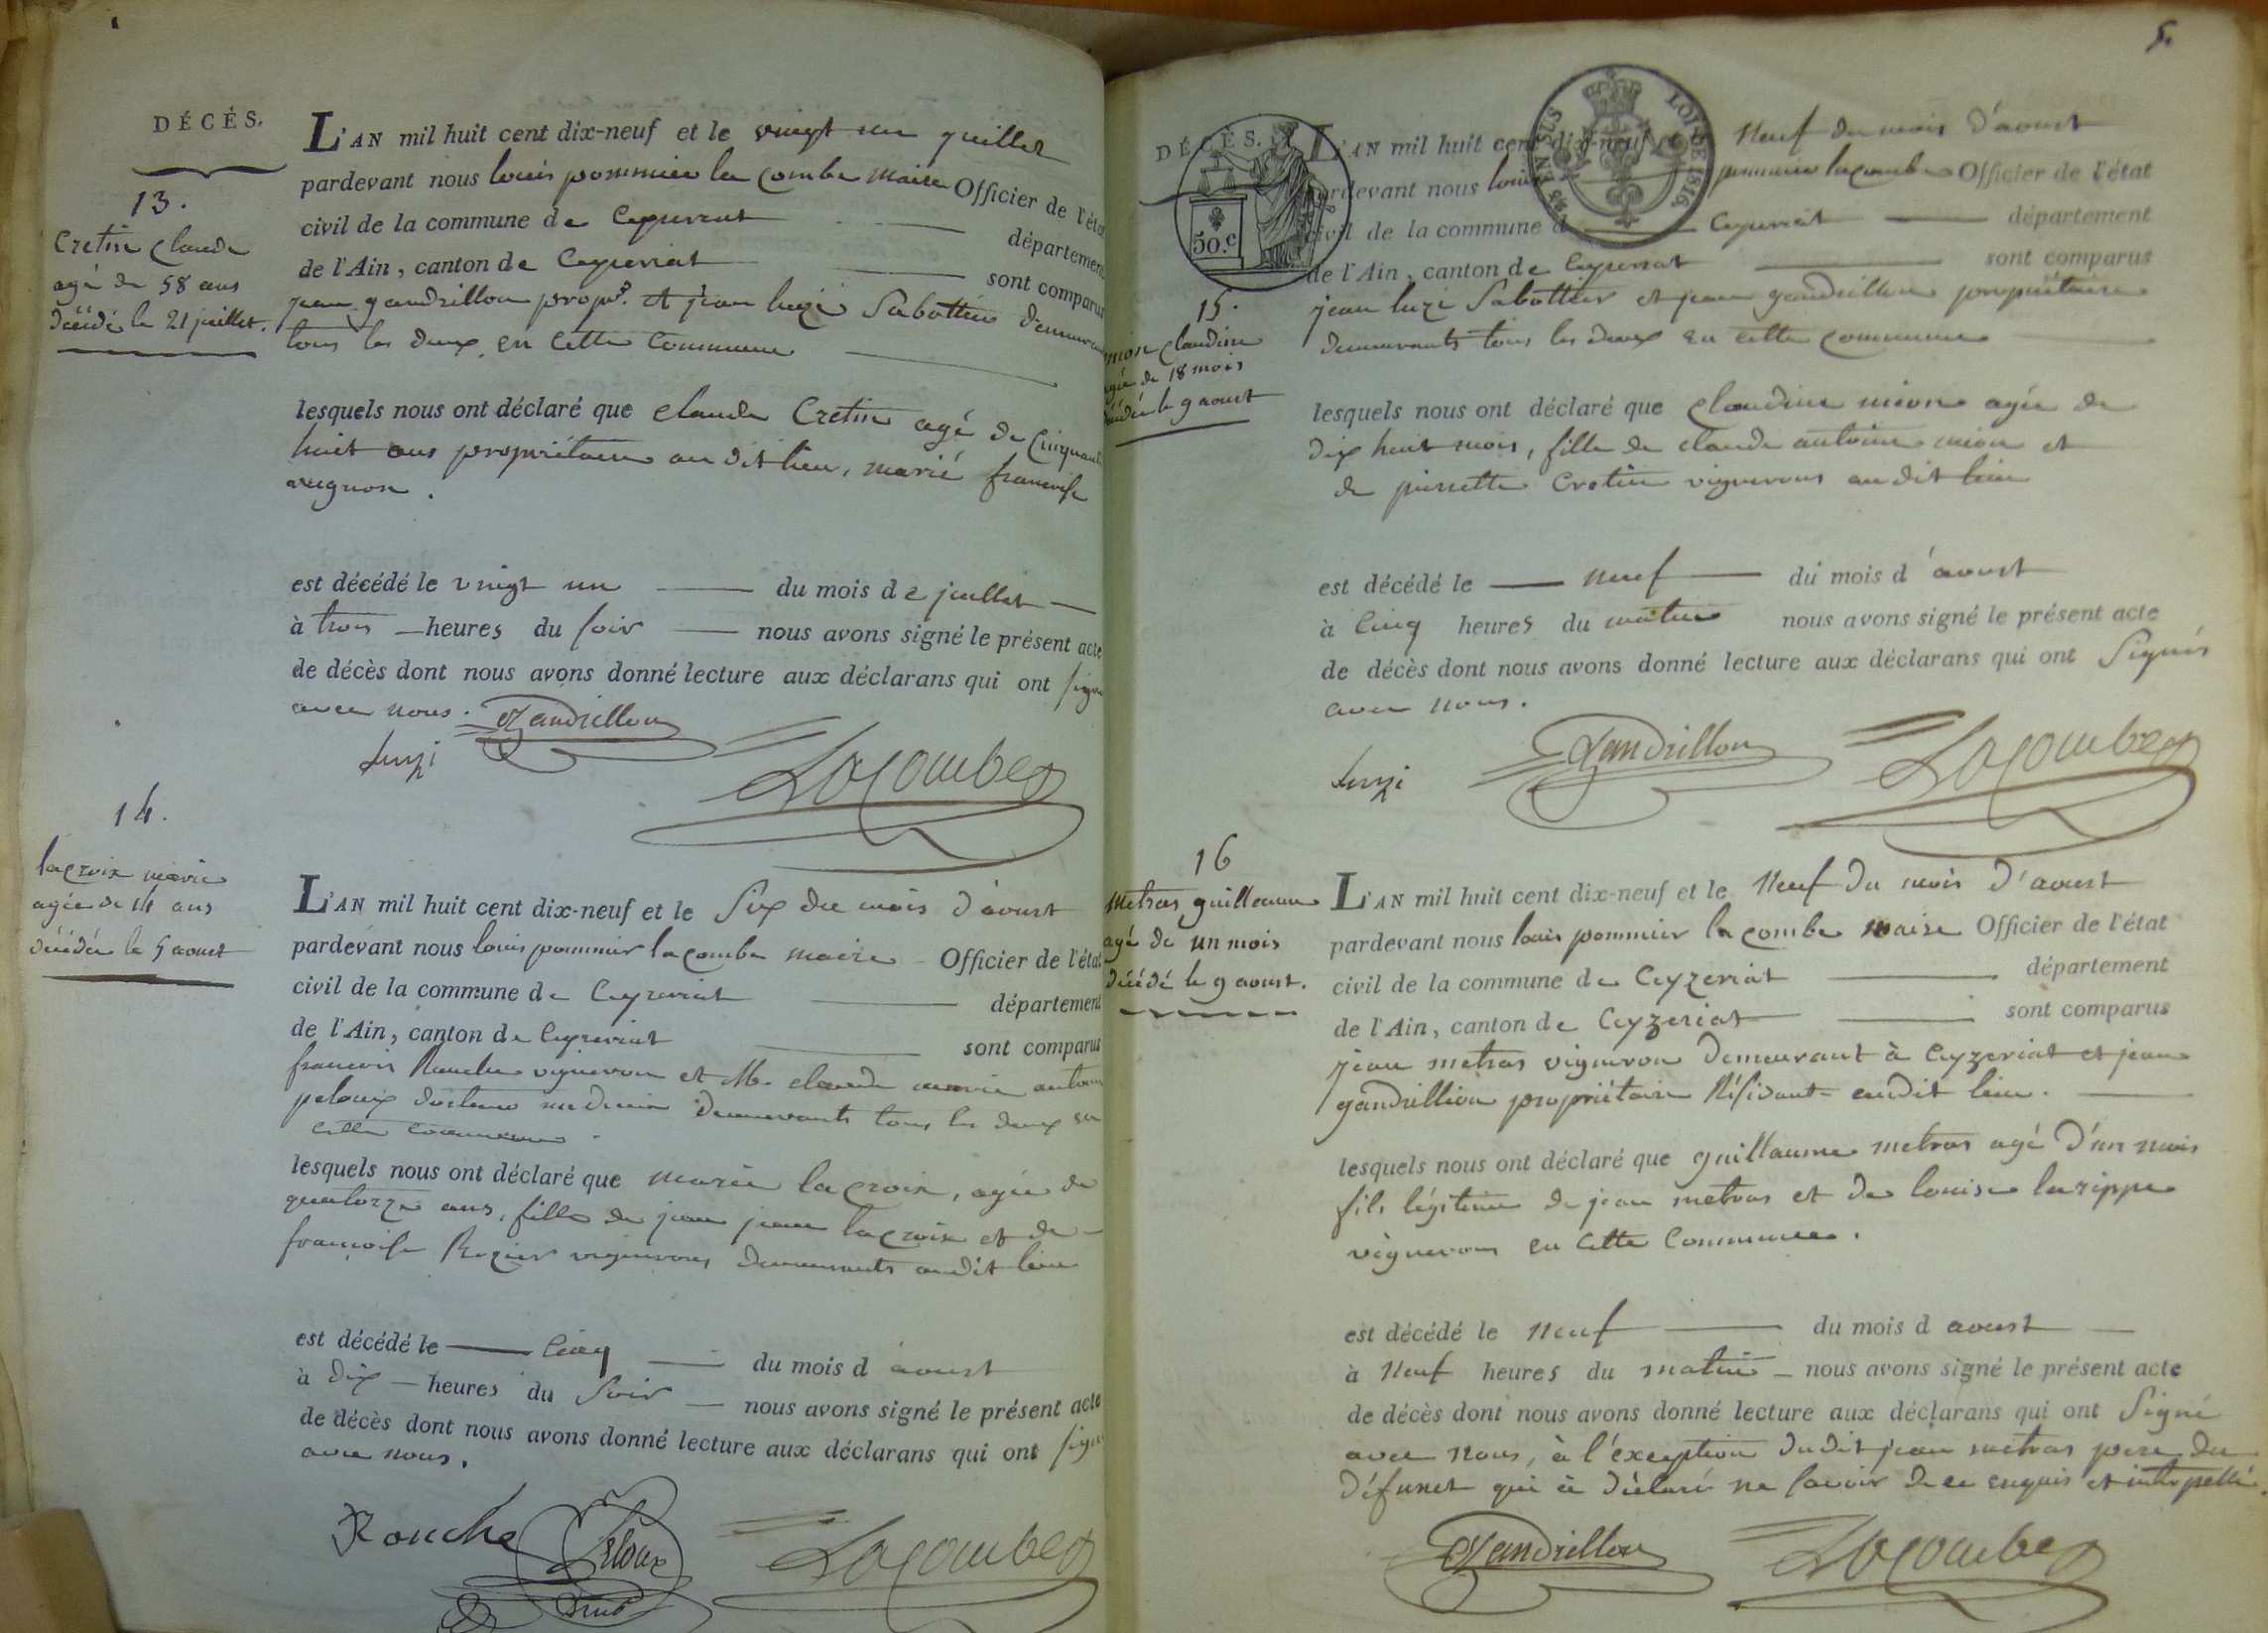 DÉCÈS.
13.
Cretin claude
agé de 58 ans
décédé le 21 juillet.
L'AN mil huit cent dix-neuf et le vingt un juillet
pardevant nous louis pommier la combe maire Officier de l'état
civil de la commune de Ceyzeriat département
de l'Ain, canton de Ceyzeriat sont comparus
jean gandrillon propre. et jean luzi Sabottier demeurant
tous les deux en cette commune
lesquels nous ont déclaré que claude Cretin agé de Cinquante
huit ans propriétaire au dit lieu, marié francoise
est décédé le vingt un du mois de juillet
à trois heures du soir nous avons signé le présent acte
de décès dont nous avons donné lecture aux déclarans qui ont signé
avec nous.
Gandrillon
Luzi
Lacombe
14.
lacroix marie
agée de 14 ans
décédée le 5 aoust
L'AN mil huit cent dix-neuf et le Six du mois d'aoust
pardevant nous louis pommier lacombe maire Officier de l'état
civil de la commune de Ceyzeriat département
de l'Ain, canton de Ceyzeriat sont comparus
francois Rouche vigneron et Mr. claude marie antoine
peloux docteur medecin demeurants tous les deux en
cette commune.
lesquels nous ont déclaré que marie lacroix, agée de
quatorze ans, fille de jean lacroix et de
francoise vignerons demeurants audit lieu
est décédé le Cinq du mois d'aoust
à dix heures du soir nous avons signé le présent acte
de décès dont nous avons donné lecture aux déclarans qui ont signé
avec nous.
Rouche
Peloux
Lacombe
5.
DÉCÈS.
50.c
EN SUS
LOI DE 1816
15.
mion claudine
agée de 18 mois
décédée le 9 aoust
L'AN mil huit cent dix-neuf et le Neuf du mois d'aoust
pardevant nous louis pommier lacombe Officier de l'état
civil de la commune de Ceyzeriat département
de l'Ain, canton de Ceyzeriat sont comparus
jean luzi Sabottier et jean gandrillon propriétaire
demeurants tous les deux en cette commune
lesquels nous ont déclaré que claudine mion agée de
dix huit mois, fille de claude antoine mion et
de pierrette Cretin vignerons audit lieu
est décédé le neuf du mois d'aoust
à Cinq heures du matin nous avons signé le présent acte
de décès dont nous avons donné lecture aux déclarans qui ont Signés
avec nous.
Luzi
Gandrillon
Lacombe
16
Metras guillaume
agé de un mois
décédé le 9 aoust.
L'AN mil huit cent dix-neuf et le Neuf du mois d'aoust
pardevant nous louis pommier la combe maire Officier de l'état
civil de la commune de Ceyzeriat département
de l'Ain, canton de Ceyzeriat sont comparus
jean metras vigneron demeurant à Ceyzeriat et jean
gandrillion propriétaire Résidant audit lieu.
lesquels nous ont déclaré que guillaume metras agé d'un mois
fils légitime de jean metras et de louise larippe
vignerons en cette Commune.
est décédé le Neuf du mois d aoust
à Neuf heures du matin nous avons signé le présent acte
de décès dont nous avons donné lecture aux déclarans qui ont Signé
avec nous, à l'exception dudit jean metras pere du
défunct qui a déclaré ne savoir de ce enquis et interpellé.
Gandrillon
Lacombe